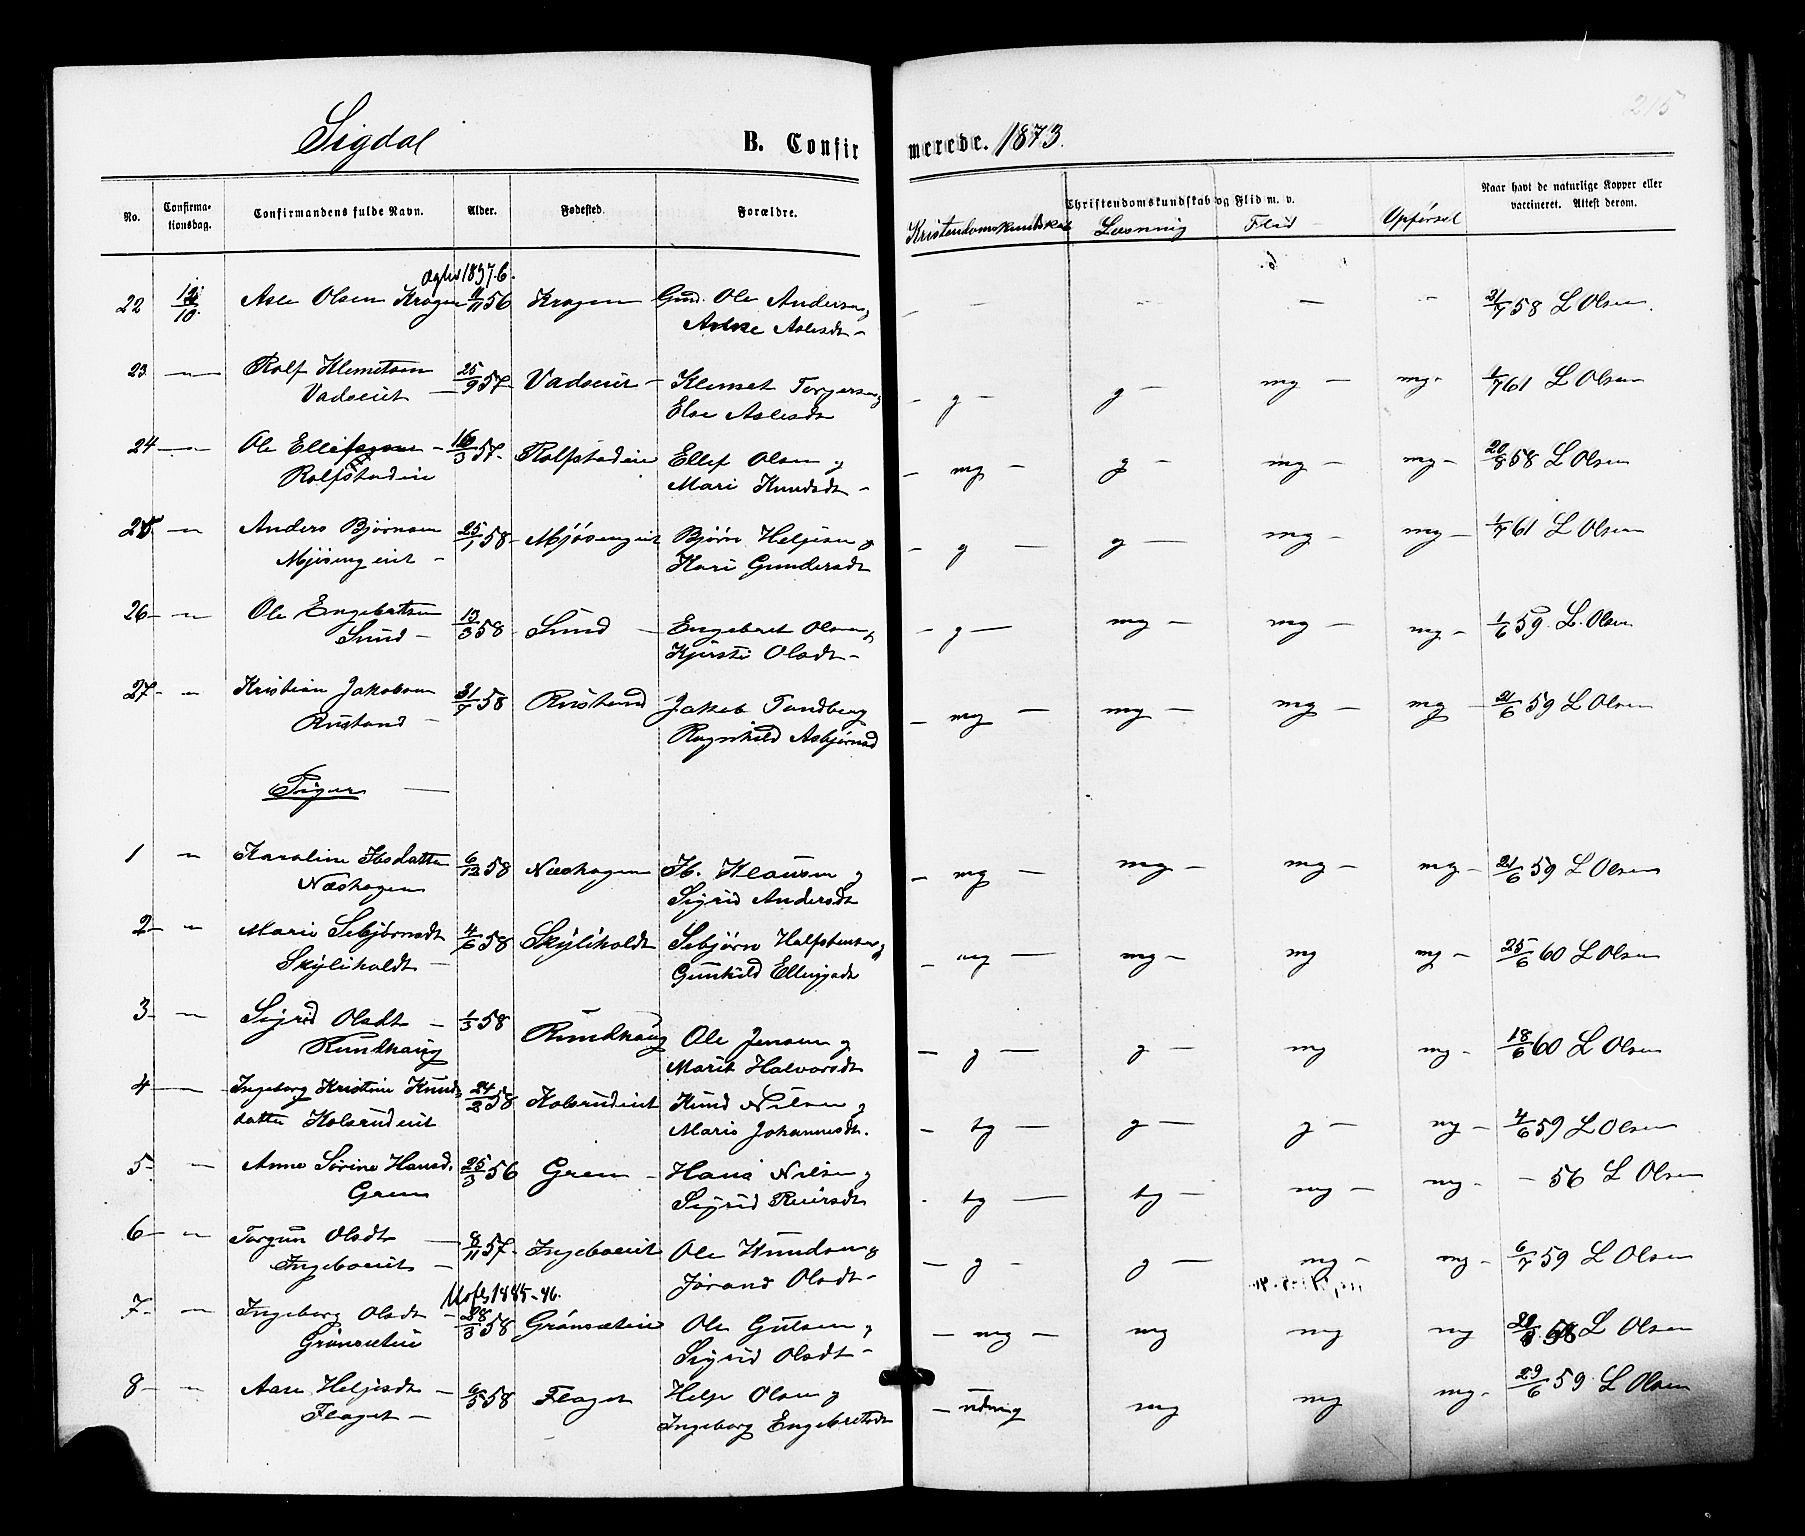 215
Sigdal B. Confirmerede. 1873.
No. Confirmationsdag. Confirmandens fulde Navn. Alder. Fødested. Forældre. Christendomskundskab og Flid m. v. Naar havt de naturlige Kopper eller vaccineret. Attest derom.
Kristendomskundskab Læsning Flid Opførsel
22 12/10 Asle Olsen Kragen 4/11 56 Kragen Gmd. Ole Andersen og - - - - 21/7 58 L Olsen.
Aslesdt -
23 - " - Rolf Klemetsen 25/9 57 Vadseiet - Klemet Torgersen og - g - g - mg - mg - 1/7 61 L Olsen
Vadseiet - Else Aslesdt
24 - " - Ole Ellefsen - 16/3 57 - Rolfstadeie Ellef Olsen og - mg - g - mg - mg - 20/8 58 L Olsen
Rolfstadeie Mari Knudsdt -
25 - " - Anders Bjørnsen 25/1 58 - Mjøsengeiet Bjørn Helgesen og - g - g - mg - mg - 1/7 61 L Olsen
Mjøsengeiet - Kari Gundersdt
26 - " - Ole Engebretsen 13/3 58 - Lund - Engebret Olsen og - g - mg - mg - mg - 1/6 59. L. Olsen
Lund - Kjersti Olsdt -
27 - " Kristian Jakobsen 31/7 58 Rustand Jakob Tandberg - mg - mg - mg - mg - 21/6 59 L Olsen
Rustand - Ragnhild Asbjørnsd
Piger -
1 " Karoline Ibsdatter 6/12 58 Næshagen Ib. Klausen og - mg - mg - mg - mg - 21/6 59 L Olsen
Næshagen Sigrid Andersdt
2 - " Marie Sebjørnsdt 4/6 58 Skyliholdt Sebjørn Halfstensen og - mg - mg - mg mg - 25/6 60 L Olsen
Skyliholdt - Gunhild Ellingsdt
3 - " - Sigrid Olsdt - 1/3 58 Rundhaug Ole Jensen og - g - g - mg mg - 18/6 60 L Olsen
Rundhaug Marit Halvorsdt
4 - " - Ingeborg Kristine Knuds- 24/2 58 Kolsrudeiet Knud Nilsen og - tg - g - g - mg - 4/6 59 L Olsen
datter Kolsrudeiet Marie Johannesdt.
5 - " Anne Sørine Hansd. 25/3 56 Gren - Hans Nilsen og - tg - tg - mg - mg - - 56 L Olsen
Gren Sigrid Reiersdt
6 - " - Torgun Olsdt - 8/11 57 - Ingeboeiet Ole Knudsen og - g - g - mg - mg - 6/7 59 L Olsen
Ingeboeiet - Jørand Olsdt -
7 - " - Ingeborg Olsdt - 28/3 58 Grønsæteie Ole Gulsen og - mg - mg mg mg 58 L Olsen
Grønsæteie Sigrid Olsdt -
8 - " Aase Helgesdt - 6/5 58 Flaget Helge Olsen og - udmg mg mg mg - 29/6 59. L Olsen
Flaget - Ingeborg Engebretsdt